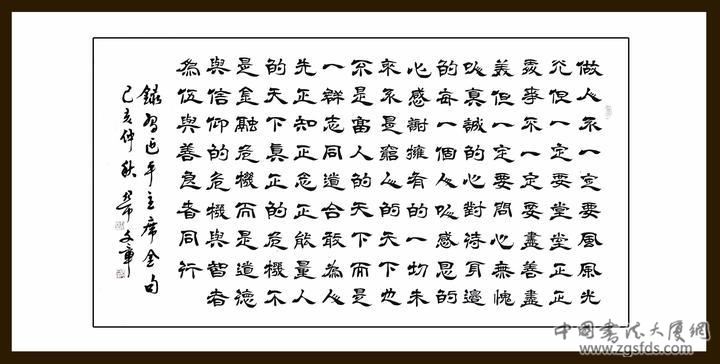 做人不一定要風風光
光但一定要堂堂正正
處事不一定要盡善盡
美但一定要問心無愧
以真誠的心對待身邊
的每一個人以感恩的
心感謝擁有的一切未
來不是窮人的天下也
不是富人的天下而是
一群志同道合敢為人
先正知正念正能量人
的天下真正的危機不
是金融危機而是道德
與信仰的危機與智者
為伍與善良者同行
錄習近平主席金句
己亥仲秋 文章
中國書法大廈網
www.zgsfds.com